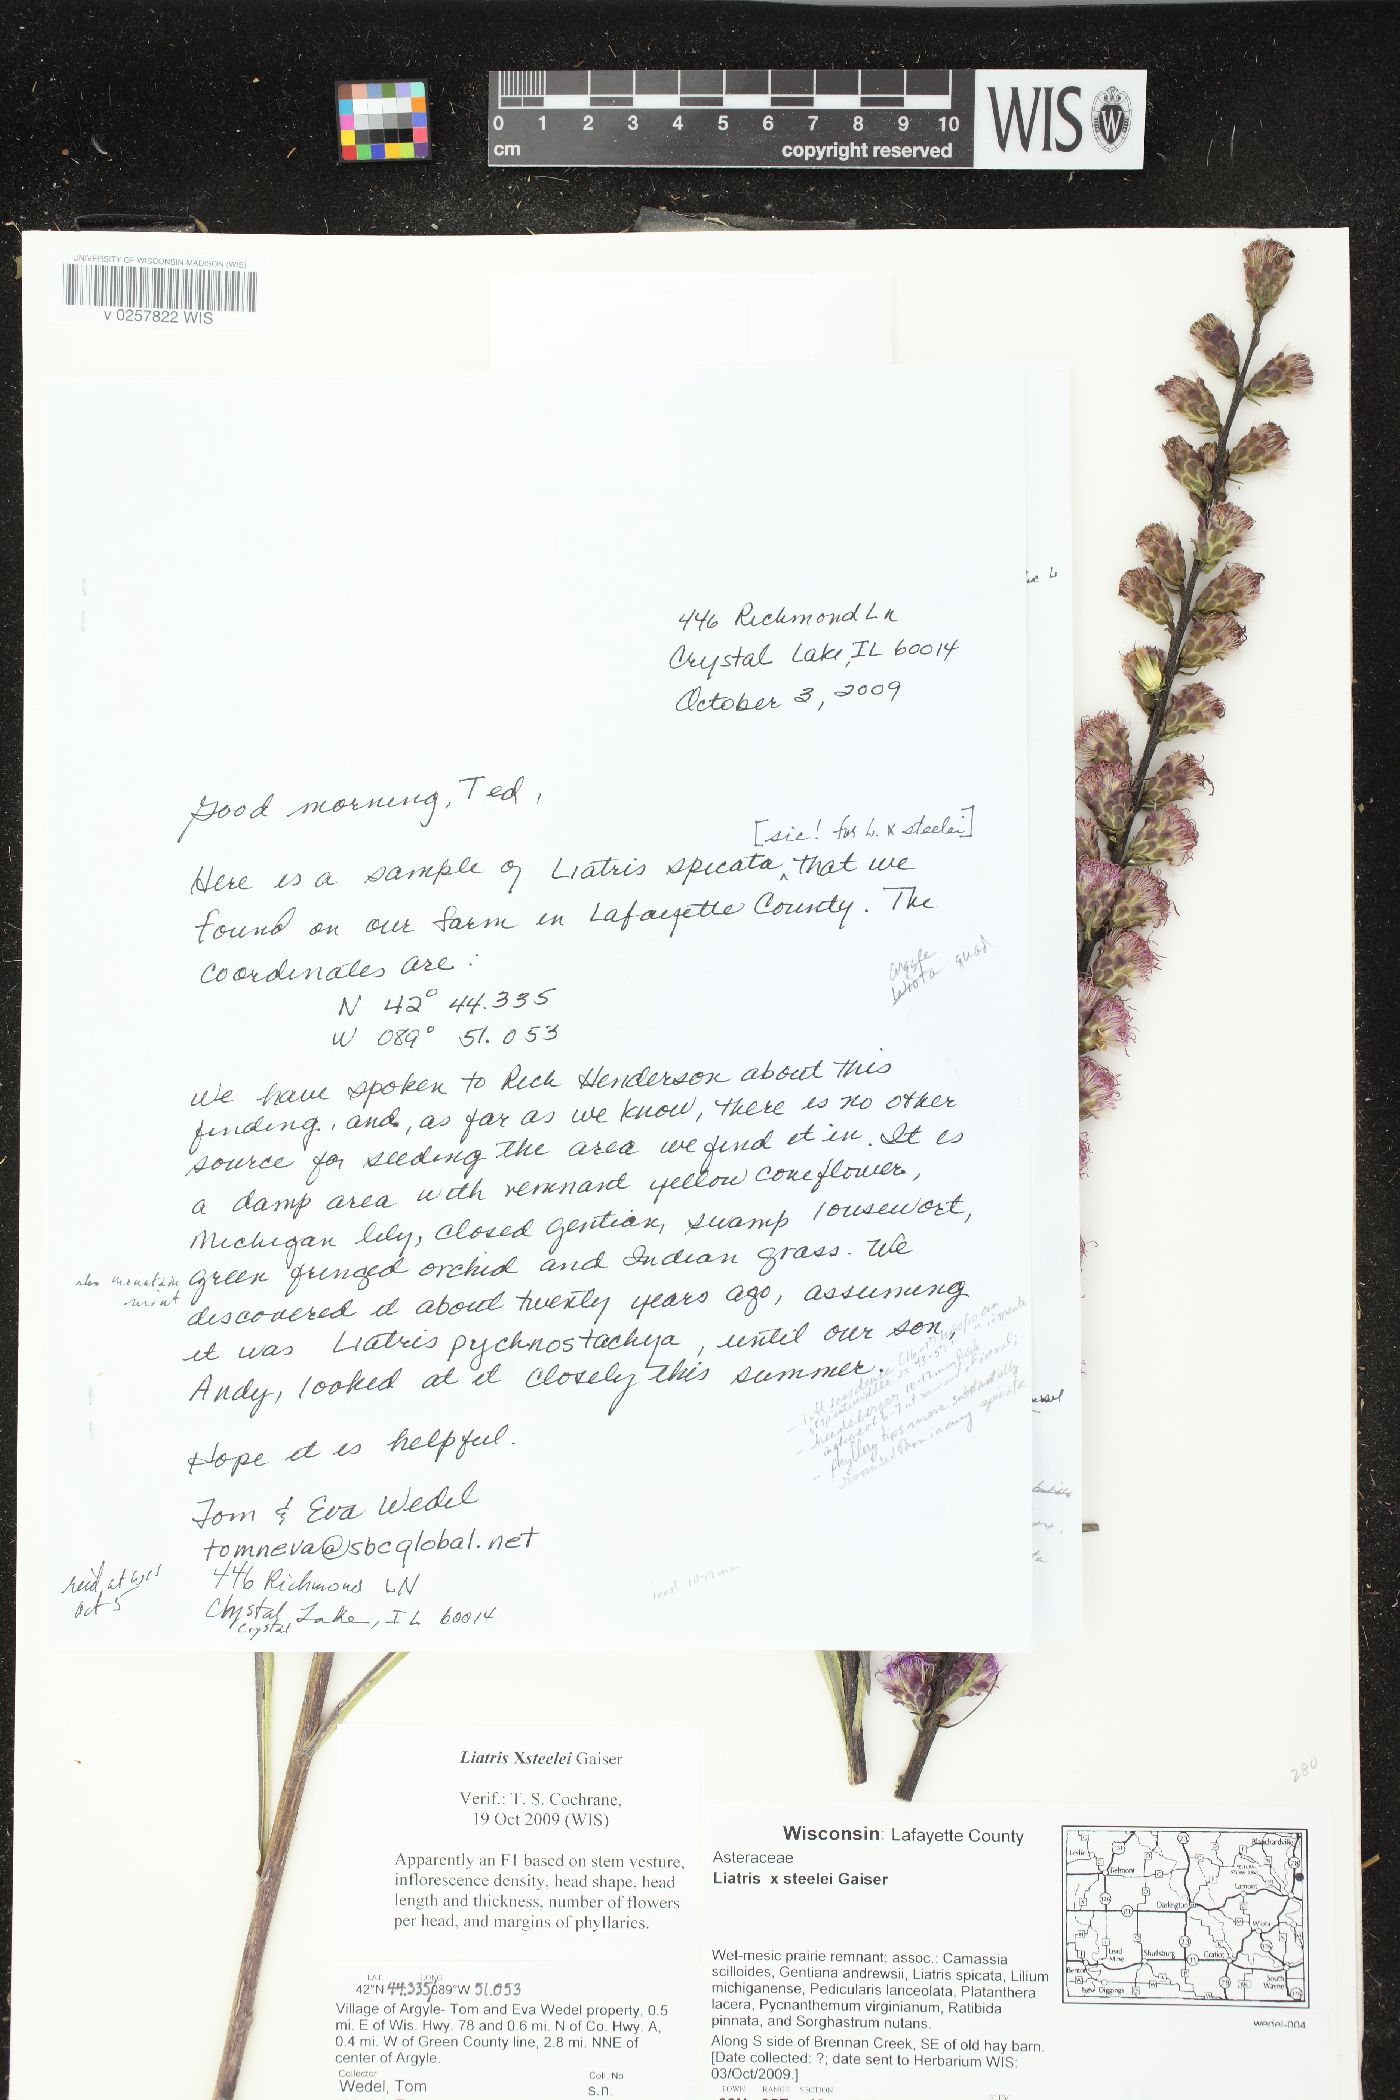 0 1 2 3 4 5 6 7 8 9 10
cm
copyright reserved
WIS
UNIVERSITY OF WISCONSIN-MADISON (WIS)
v 0257822 WIS
446 Richmond Ln
Crystal Lake, IL 60014
October 3, 2009
Good morning, Ted,
[sic! for L. x steelei]
Here is a sample of Liatris spicata ^ that we
found on our farm in Lafayette County. The
coordinates are:
Argyle
Wiota quad
N 42° 44.335
W 089° 51.053
We have spoken to Rich Henderson about this
finding, and, as far as we know, there is no other
source for seeding the area we find it in. It is
a damp area with remnant yellow coneflower,
Michigan lily, closed gentian, swamp lousewort,
green fringed orchid and Indian grass. We
also mountain
mint
discovered it about twenty years ago, assuming
it was Liatris pychnostachya, until our son,
Andy, looked at it closely this summer.
Hope it is helpful.
Tom & Eva Wedel
tomneva@sbcglobal.net
446 Richmond LN
Crystal Lake, IL 60014
Crystal
Oct 5
280
Liatris Xsteelei Gaiser
Verif.: T. S. Cochrane,
19 Oct 2009 (WIS)
Apparently an F1 based on stem vesture,
inflorescence density, head shape, head
length and thickness, number of flowers
per head, and margins of phyllaries.
LAT. LONG
42°N 44.335/089°W 51.053
Village of Argyle- Tom and Eva Wedel property, 0.5
mi. E of Wis. Hwy. 78 and 0.6 mi. N of Co. Hwy. A,
0.4 mi. W of Green County line, 2.8 mi. NNE of
center of Argyle.
Collector Coll. No.
Wedel, Tom s.n.
Wisconsin: Lafayette County
Asteraceae
Liatris x steelei Gaiser
Wet-mesic prairie remnant; assoc.: Camassia
scilloides, Gentiana andrewsii, Liatris spicata, Lilium
michiganense, Pedicularis lanceolata, Platanthera
lacera, Pycnanthemum virginianum, Ratibida
pinnata, and Sorghastrum nutans.
Along S side of Brennan Creek, SE of old hay barn.
[Date collected: ?; date sent to Herbarium WIS:
03/Oct/2009.]
TOWN RANGE SECTION
Leslie
Belmont
Blanchardville
Lamont
Darlington
Wiota
Lead
Mine
Shullsburg
Gratiot
Benton
New Diggings
South
Wayne
wedel-004